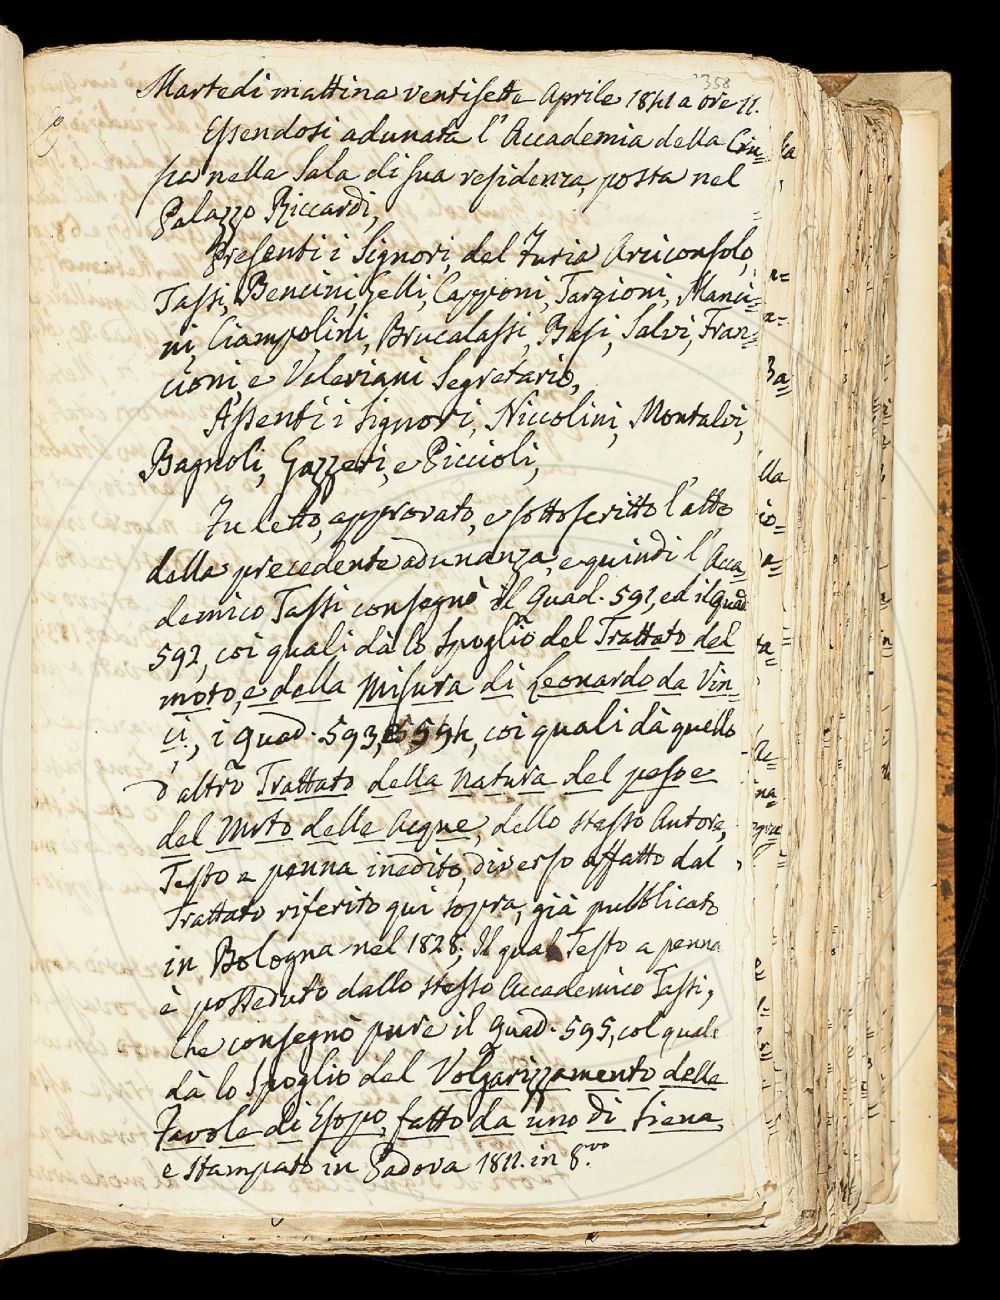 358
Martedi mattina ventisette Aprile 1841 a ore 11.
Essendosi adunata l'Accademia della Cru=
sca nella Sala di sua residenza, posta nel
Palazzo Riccardi,
Presenti i Signori, del Furia Arciconsolo,
Tassi, Bencini, Gelli, Capponi, Targioni, Manci=
ni, Ciampolini, Brucalassi, Basi, Salvi, Fran=
cioni, e Valeriani Segretario,
Assenti i Signori, Niccolini, Montalvi,
Bagnoli, Gazzeri, e Piccioli,
Fu letto, approvato, e sottoscritto l'atto
della precedente adunanza, e quindi l'Acca=
demico Tassi consegnò il Quad. 591, ed il Quad.
592, coi quali dà lo Spoglio del Trattato del
moto, e della Misura di Leonardo da Vin=
ci, i Quad. 593, e 594, coi quali dà quello
d'altro Trattato della natura del peso e
del Moto delle Acque, dello stesso Autore,
Testo a penna inedito, diverso affatto dal
Trattato riferito qui sopra, già pubblicato
in Bologna nel 1828; Il qual Testo a penna
è posseduto dallo stesso Accademico Tassi,
che consegnò pure il Quad. 595, col quale
dà lo Spoglio del Volgarizzamento delle
Favole di Esopo, fatto da uno di Siena,
e stampato in Padova 1811. in 8.vo